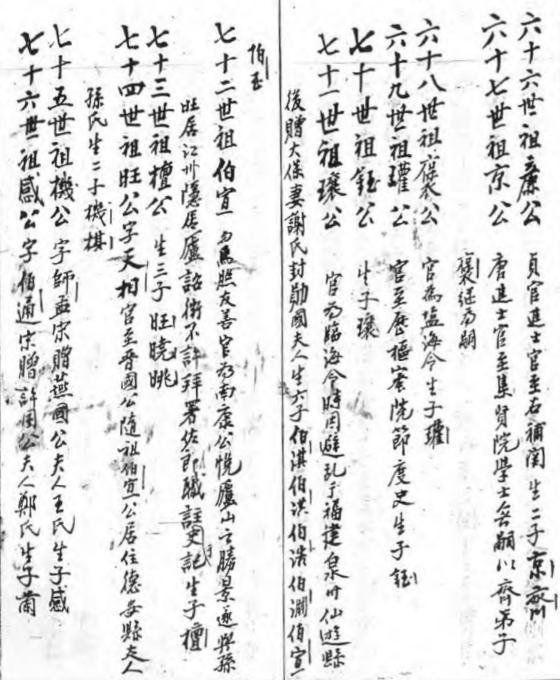 六十六世祖兼公 貞官進士官至右補闕生二子京
六十七世祖京公 唐進士官至集賢院學士無嗣以齊弟子
褒继为嗣
六十八世祖褒公 官為塩海令生子瓘
六十九世祖瓘公 官至歷樞密院節度史生子鈺
七十世祖鈺公 生子瓌
七十一世祖瓌公 官为臨海令時因避乱于福建泉州仙遊縣
後贈大保妻謝氏封勛國夫人生六子伯淇伯洪伯渎伯澗伯宣
伯玉
七十二世祖伯宣 馬照友善官为南康公悅廬山之勝景遂與孫
旺居江州隱居廬 詔徵不許拜署佐郎職註史記生子檀
七十三世祖檀公 生三子旺曉晀
七十四世祖旺公字天相官至晉國公隨祖伯宣公居住德安縣夫人
孫氏生二子機棋
七十五世祖機公 字師孟宋贈燕國公夫人王氏生子感
七十六世祖感公 字伯通宋贈許国公夫人鄭氏生子蘭